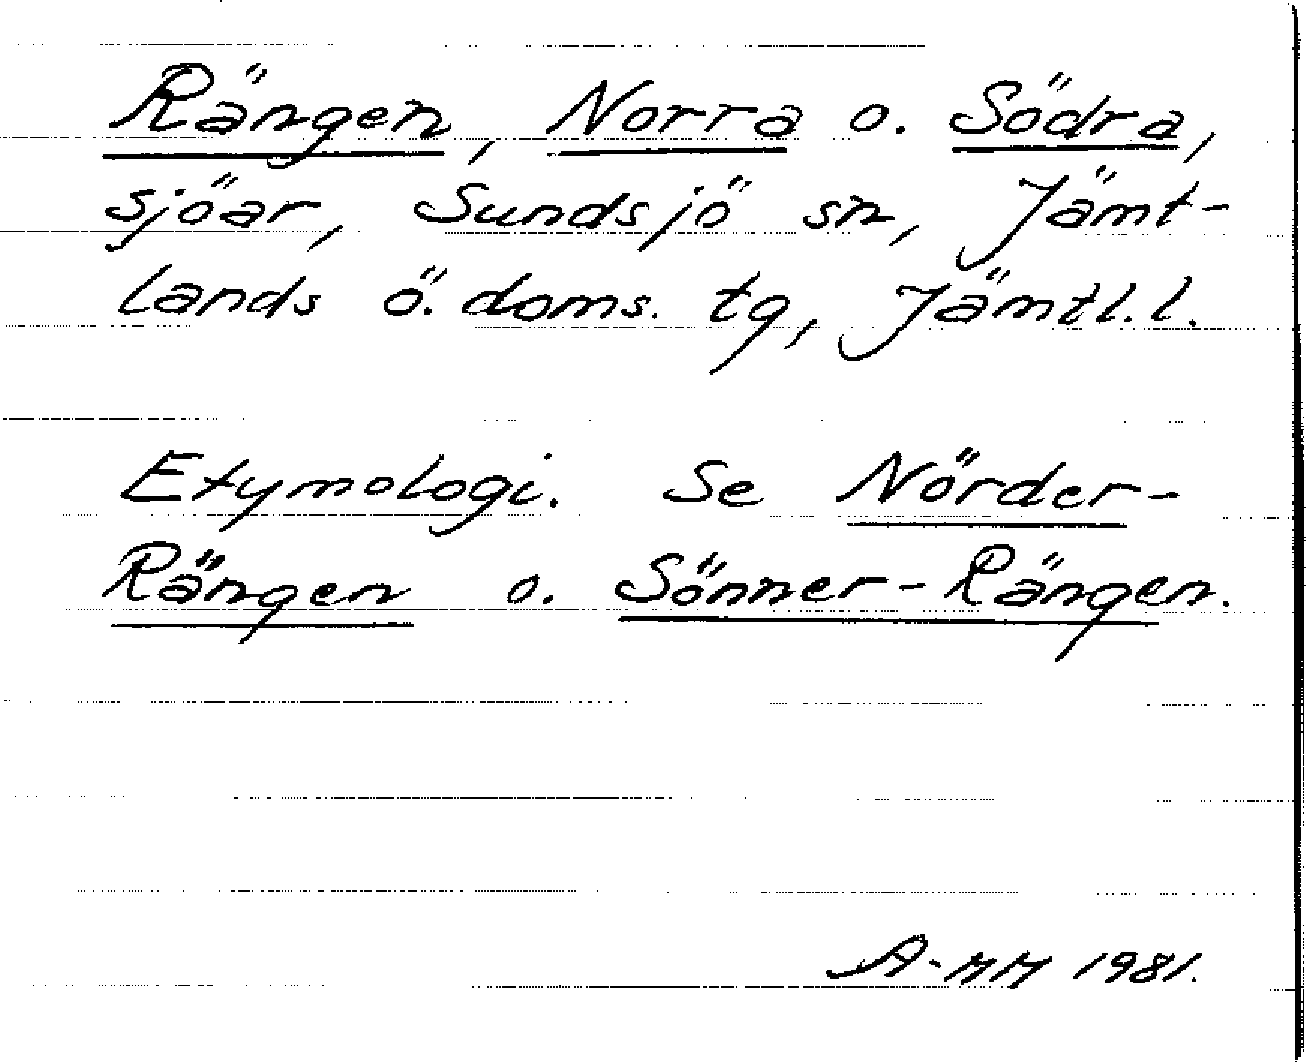 Rängen, Norra o. Södra,
sjöar, Sundsjö sn, Jämt-
lands ö. doms. tg, Jämtl. l.
Etymologi. Se Nörder-
Rängen o. Sönner-Rängen.
A-MM 1981.